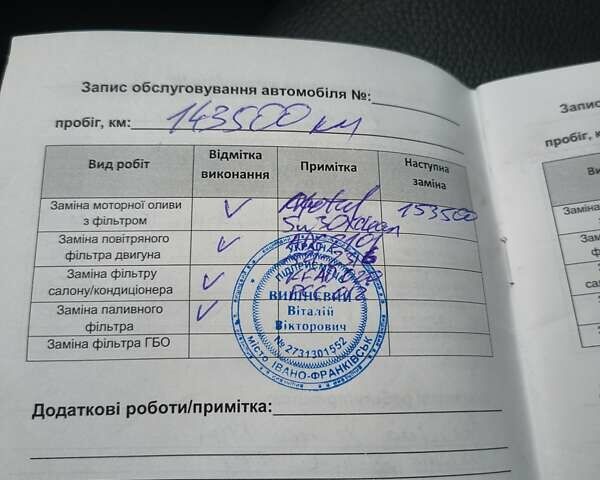 Запис обслуговування автомобіля №:
пробіг, км: 143500 км
Вид робіт Відмітка виконання Примітка Наступна заміна
Заміна моторної оливи з фільтром 153500
Заміна повітряного фільтра двигуна
Заміна фільтру салону/кондиціонера
Заміна паливного фільтра
Заміна фільтра ГБО
УКРАЇНА
Віталій
Вікторович
№ 2731301552
МІСТО ІВАНО-ФРАНКІВСЬК
Додаткові роботи/примітка:
Запис
пробіг, к